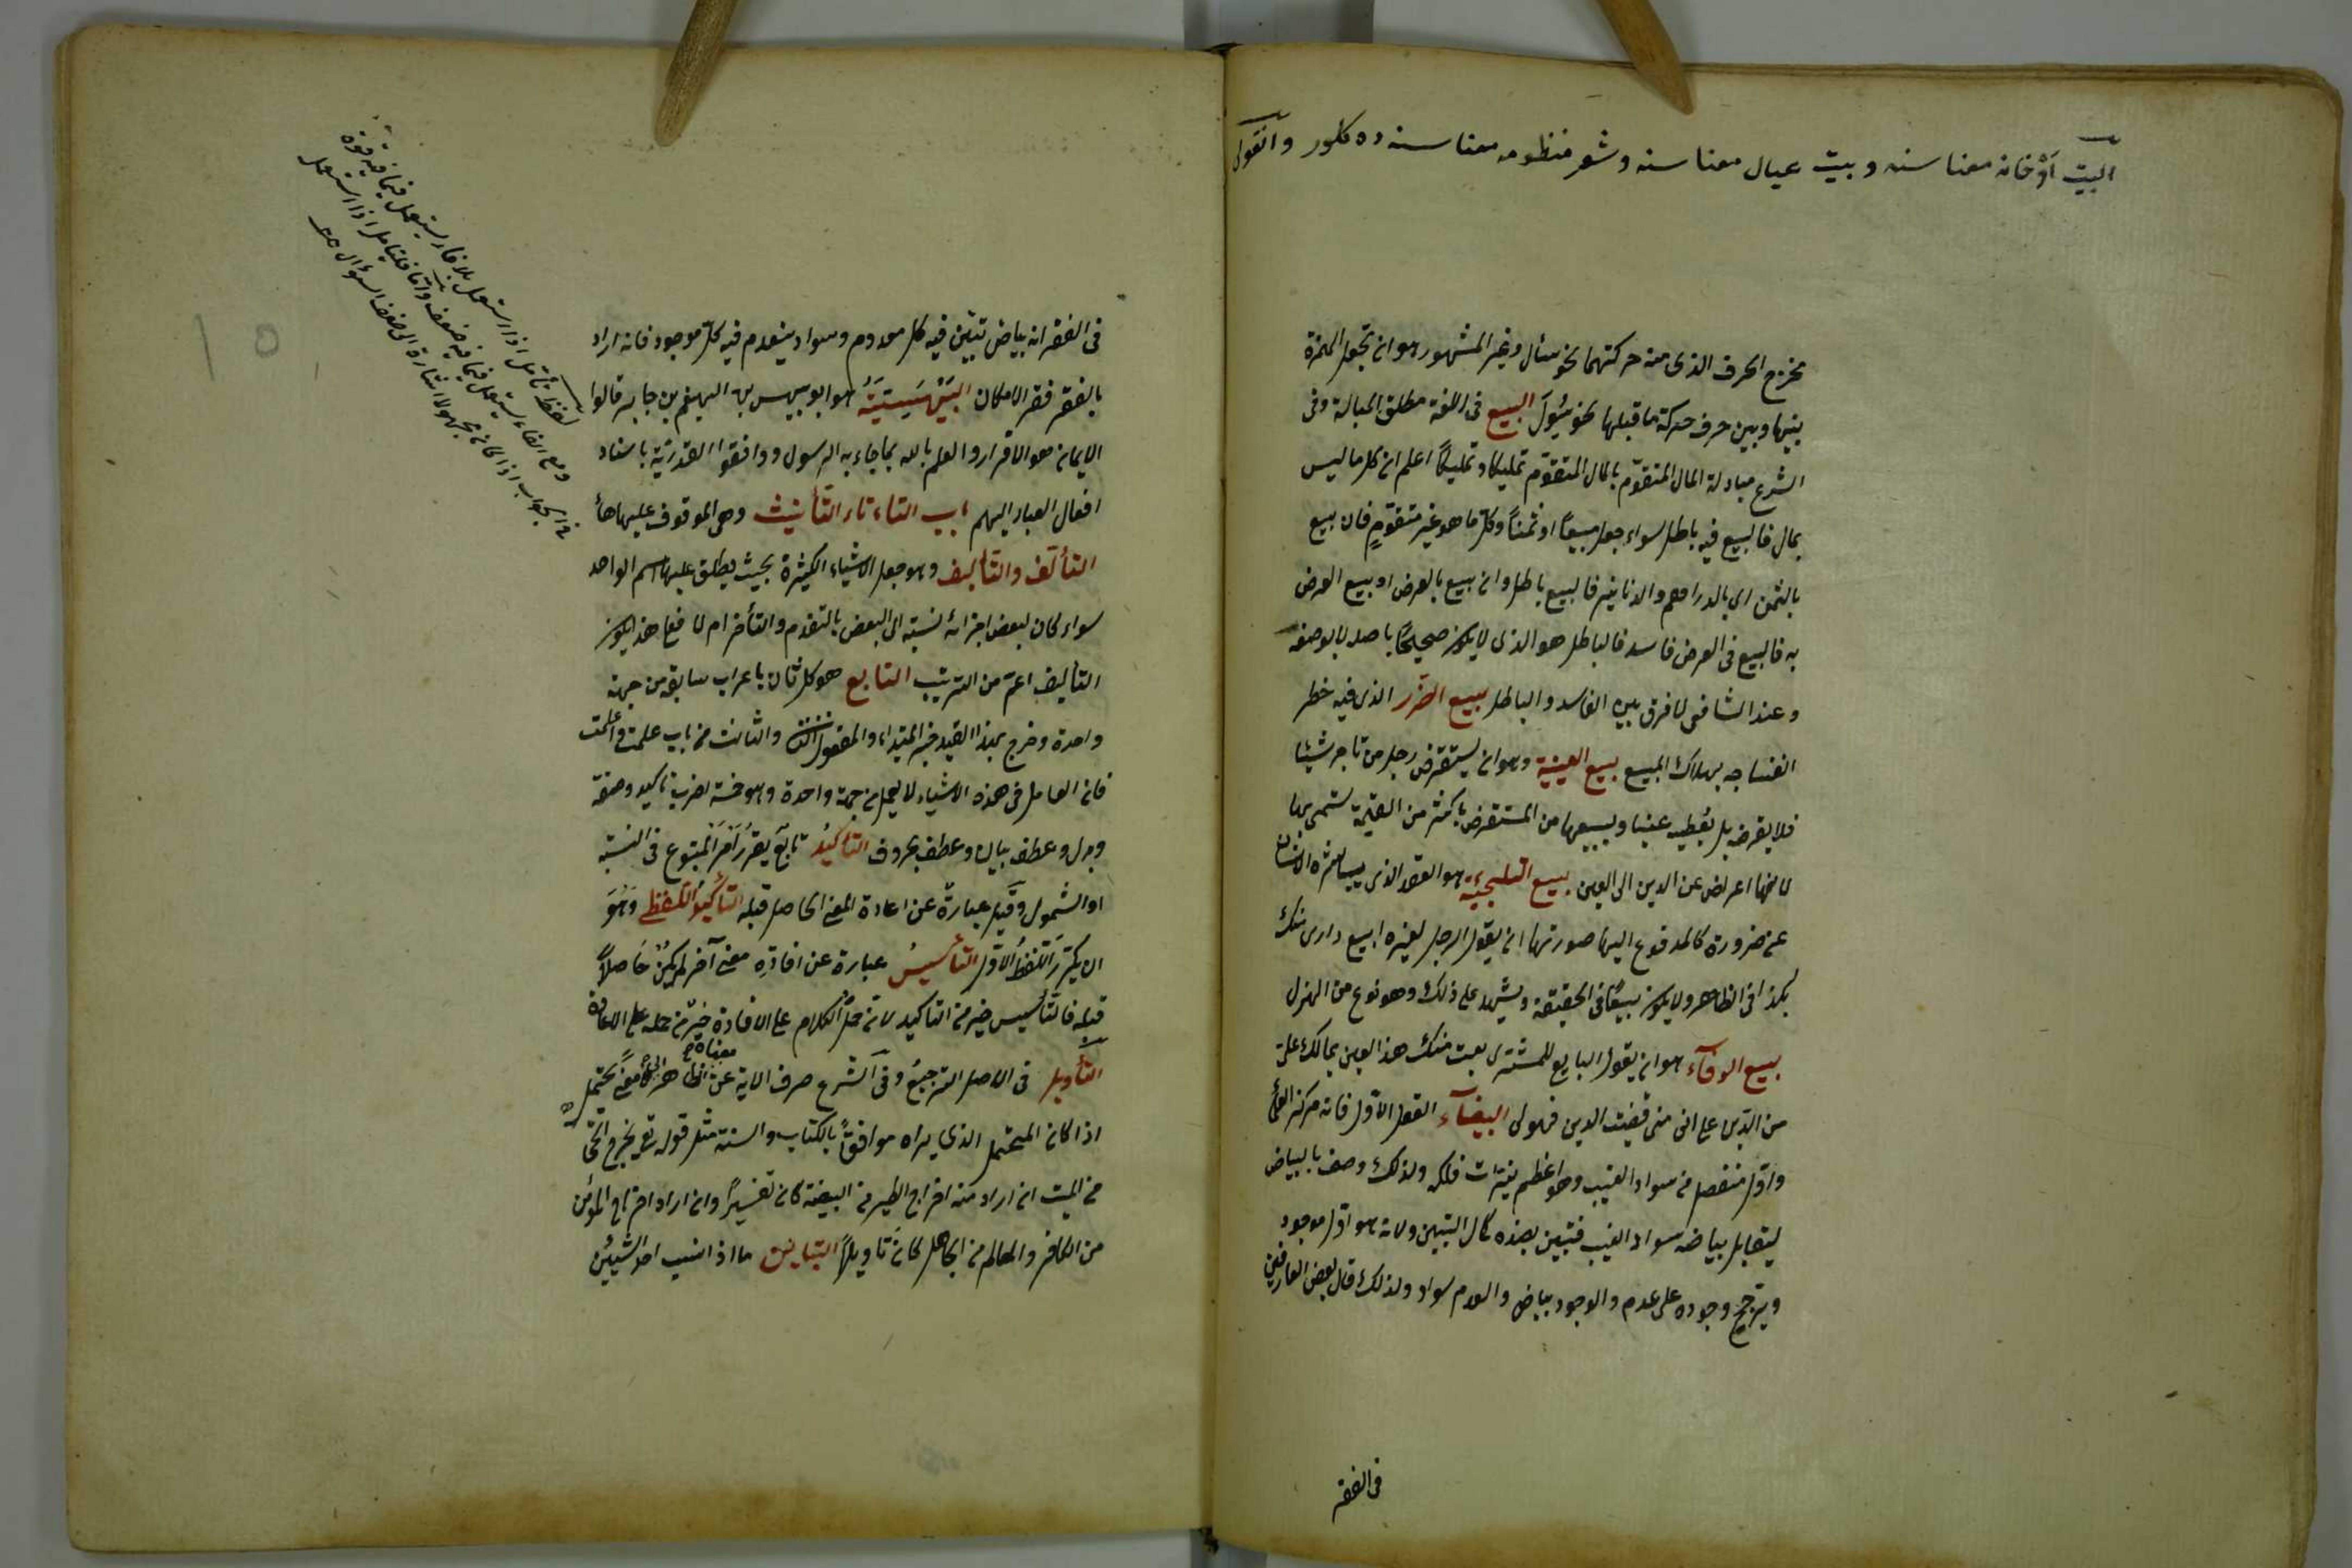 البيت اَوْ خانه معناسنه وبيت عيال معناسنه وشعر منظومه معناسنده كلور
مخرج الحرف الذى منه حركتهما نحو سئل وغير المشهور هو ان تجعل الهمزة
بينها وبين حرف حركة ما قبلها نحو سُئِول البيع فى اللغة مطلق المبادلة وفى
الشرع مبادلة المال المتقوّم بالمال المتقوّم تمليكا وتملّكًا اعلم ان كل ما ليس
بمال فالبيع فيه باطل سواء جعل مبيعًا او ثمنًا وكل ما هو غير متقوّمٍ فان بيع
بالثمن اى بالدراهم والدنانير فالبيع باطل وان بيع بالعرض او بيع العرض
به فالبيع فى العرض فاسد فالباطل هو الذى لا يكون صحيحًا باصله لا بوصفه
وعند الشافعى لا فرق بين الفاسد والباطل بيع الضرر الذى فيه خطر
انفساخه بهلاك المبيع بيع العينية وهو ان يستقرض رجل من تاجر شيئا
فلا يقرضه بل يُعطيه عينا ويبيعها من المستقرض باكثر من القيمة سُمّى بها
لانها اعراض عن الدين الى العين بيع التلجئية هو العقد الذى يباشره الانسان
عن ضرورة كالمدفوع اليها صورتها ان يقول الرجل لغيره ابيع دارى منك
بكذا فى الظاهر ولا يكون بيعًا فى الحقيقة ويشهد على ذلك وهو نوع من الهزل
بيع الوفآء هو ان يقول البايع للمشترى بعت منك هذا العين بمالك علىّ
من الدّين على انى متى قضيت الدين فهو لى البيضآء العقل الاوّل فانه مركز العمى
واوّل منفصل من سواد الغيب وهو اعظم نيّرات فلكه ولذلك وصف بالبياض
ليقابل بياضه سواد الغيب فتبين بضده كمال التبيين ولانه هو اوّل موجود
ويترجّح وجوده على عدم والوجود بياض والعدم سواد ولذلك قال بعض العارفين
فى الفقر
فى الفقر انه بياض تبيّن فيه كل معدوم وسواد ينعدم فيه كلّ موجود فانه اراد
بالفقر فقر الامكان البَيْهَسِيَّةُ هو ابو بيهس بن الهيصم بن جابر قالوا
الايمان هو الاقرار والعلم بالله بما جاء به الرسول ووافقوا القدريّة باسناد
افعال العباد اليهم باب التاء تاء التأنيث وهى الموقوف عليها هاءً
التألّف والتأليف وهو جعل الاشياء الكثيرة بحيث يطلق عليها اسم الواحد
سواء كان لبعض اجزائه نسبته الى البعض بالتقدم والتأخر ام لا فعلى هذا يكون
التأليف اعمّ من الترتيب التابع هو كل ثان باعراب سابقه من جهة
واحدة وخرج بهذا القيد خبر المبتداء والمفعول الثانى والثالث من باب علمت واعلمت
فان العامل فى هذه الاشياء لا يعمل من جهة واحدة وهو خمسة اضرب تاكيد وصفة
وبدل وعطف بيان وعطف بحروف التأكيدُ تابعٌ يقرّر اَمر المتبوع فى النسبة
او الشمول وقيل عبارة عن اعادة المعنى الحاصل قبله التأكيدُ اللفظى وَهُوَ
ان يكرّرَ اللّفظُ الاوّل التأسيسُ عبارة عن افادةِ معنى آخر لم يكن حَاصلاً
قبله فالتّأسيس خير من التاكيد لانّ حملَ الكلام على الافادة خيرٌ من حمله على الاعادة
التّأويل فى الاصل الترجيعُ وفى الشرع صرف الاية عن معناه الظاهر الى معنىً يحتمل
اذا كان المحتمل الذى يراه موافقاً بالكتاب والسنة مثل قوله تع يخرج الحىّ
من الميت ان اراد منه اخراج الطير من البيضة كان تفسيرًا وان اراد اخراج المؤمن
من الكافر والعالم من الجاهل كان تأويلاً التباين ما اذا نسب احد الشيئين
لفظ تأمّل اذا استعمل بلا فاء يستعمل فيما فيه قوة
ومع الفاء يستعمل فيما فيه ضعف وامّا فليتأمل اذا استعمل
فى الجواب اذا كان مجهولا اشارة الى ضعف السؤال